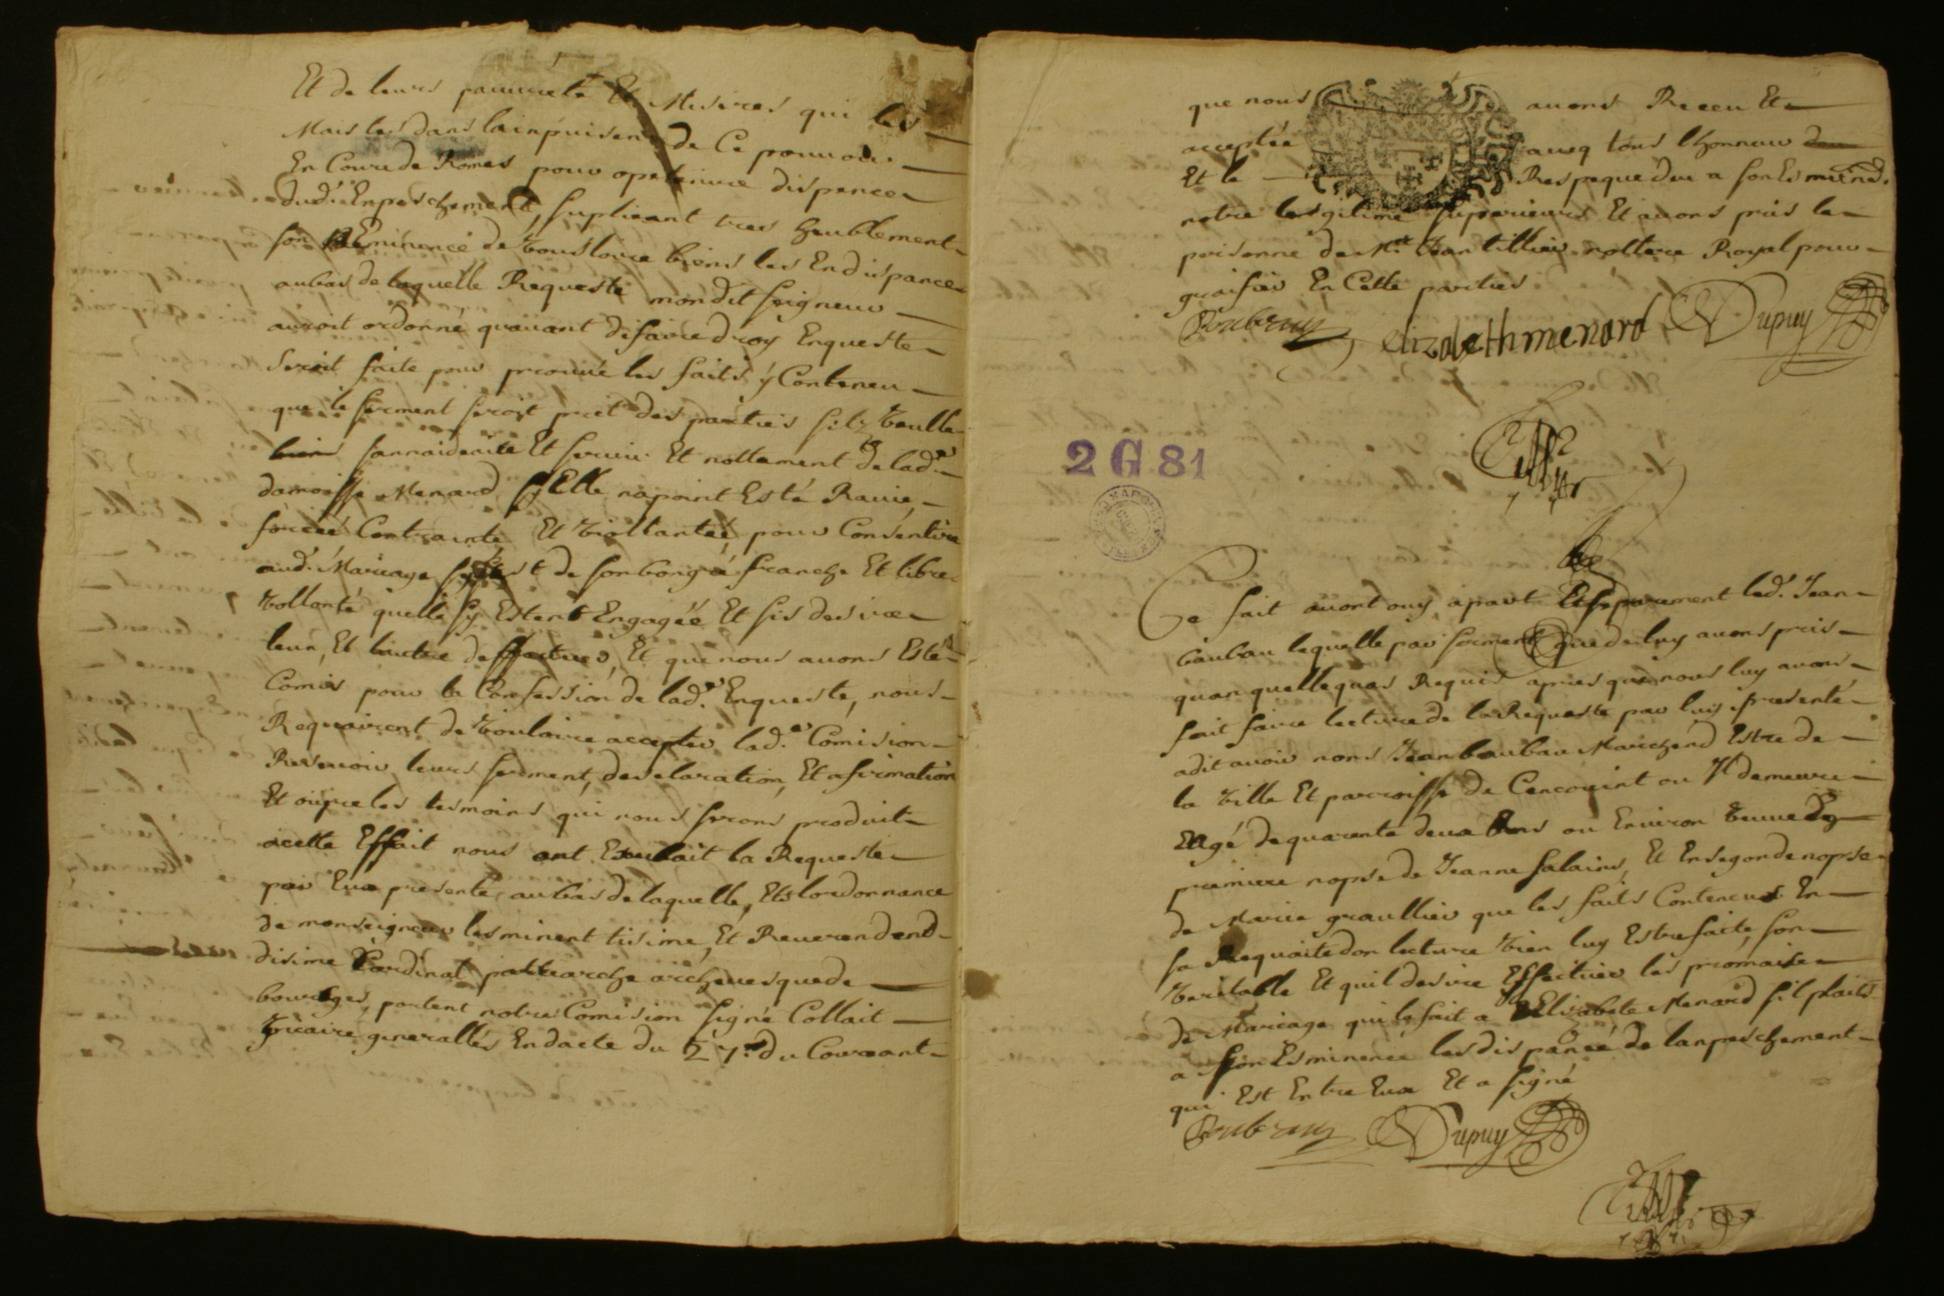 Et de leurs pauureté Et Miseres qui les
Mais les dans lainpuisence de Ce pouruoir
En Cour de Romes pour optenire dispence
dud.t Enpeschement, supliant tres heublement
son Eminence de Vousloire biens les En dispance
aubas de laquelle Requeste mondit seigneur
auroit ordonné, quauant de faire droy Enqueste
seroit faite pour prouué les faits y Conteneu
que le serment seroit prit des parties silz Veulle
sannaideaite Et seruir Et nottament de lad.e
damoiss.e Menard sy Elle napoint Esté Rauie,
forcée Contrainte Et Viollantée, pour Consentire
aud.t Mariage sy Cest de son bong ré franche Et libre
Vollonté quelle sy Estent Engagée Et sis desire
leun, Et lautre deffectuer, Et que nous auons Esté
Comis pour la Confession de lad.e Enqueste, nous
Requairent de Vouloire accepter lad.e Comision
Reseuoir leurs serment, desclaration, Et afirmation
Et ouir les tesmoins qui nous serons produit
acette Effait nous ont Exsibait la Requeste
par Eux presenté, aubas de laquelle, Est lordonnance
de monseigneur lesminent tisime, Et Reuerendend
disime Cardinal patriarche archeuesque de
bourges, portent notre Comision signé Collait
Vicaire generallés En dacte du 27.e du Courant
que nous auons Receu Et
acceptée aueq tous lhonneur
Et le Respeque deu a son Esminend.
notre lesgitime superieurs Et auons pris la
personne de M.e Jean tillier nottere Royal pour
graifier En Cette parties
elizabeth menard Dupuy
2 G 81
Ce fait auont ouy apart Et separement led.t Jean
baubau lequelle par serment que de luy auons pris
quan quelle quas Requis apries que nous luy auons
fait faire lecture de la Requeste par luy presenté
adit auoir nons Jean baubau Marchend Estre de
la Ville Et parroisse de Cencouint ou Il demeure
Eagé de quarente deux Ens ou Enuiron Veuue de
premiere nopse de Jeanne salains, Et En segonde nopse
de Marie graullier que les faits Conteneus En
sa Requaite don lecture Vien luy Estre faite, son
Veritable Et quil desire Effectuer les promaise
de Mariage qui la fait a Elizabete Menard sil plait
a son Esminence les dispancé de lanpeschement
qui Est Entre Eux Et a signé
Dupuy